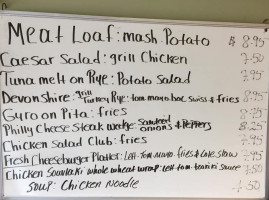 Meat Loaf: mash Potato $ 8.95
Caesar Salad: grill Chicken 7.50
Tuna melt on Rye: Potato Salad 7.95
Devonshire: grill Turkey Rye: tom mayo bac swiss & fries 8.95
Gyro on Pita: fries 8.95
Philly Cheese Steak wedge: Sauteed onions & Peppers 8.25
Chicken Salad Club: fries 7.95
Fresh Cheeseburger Platter: Lett Tom mayo fries & Cole slaw 7.95
Chicken Souvlaki whole wheat wrap: Lett tom tzaziki sauce 7.50
Soup: Chicken Noodle .50